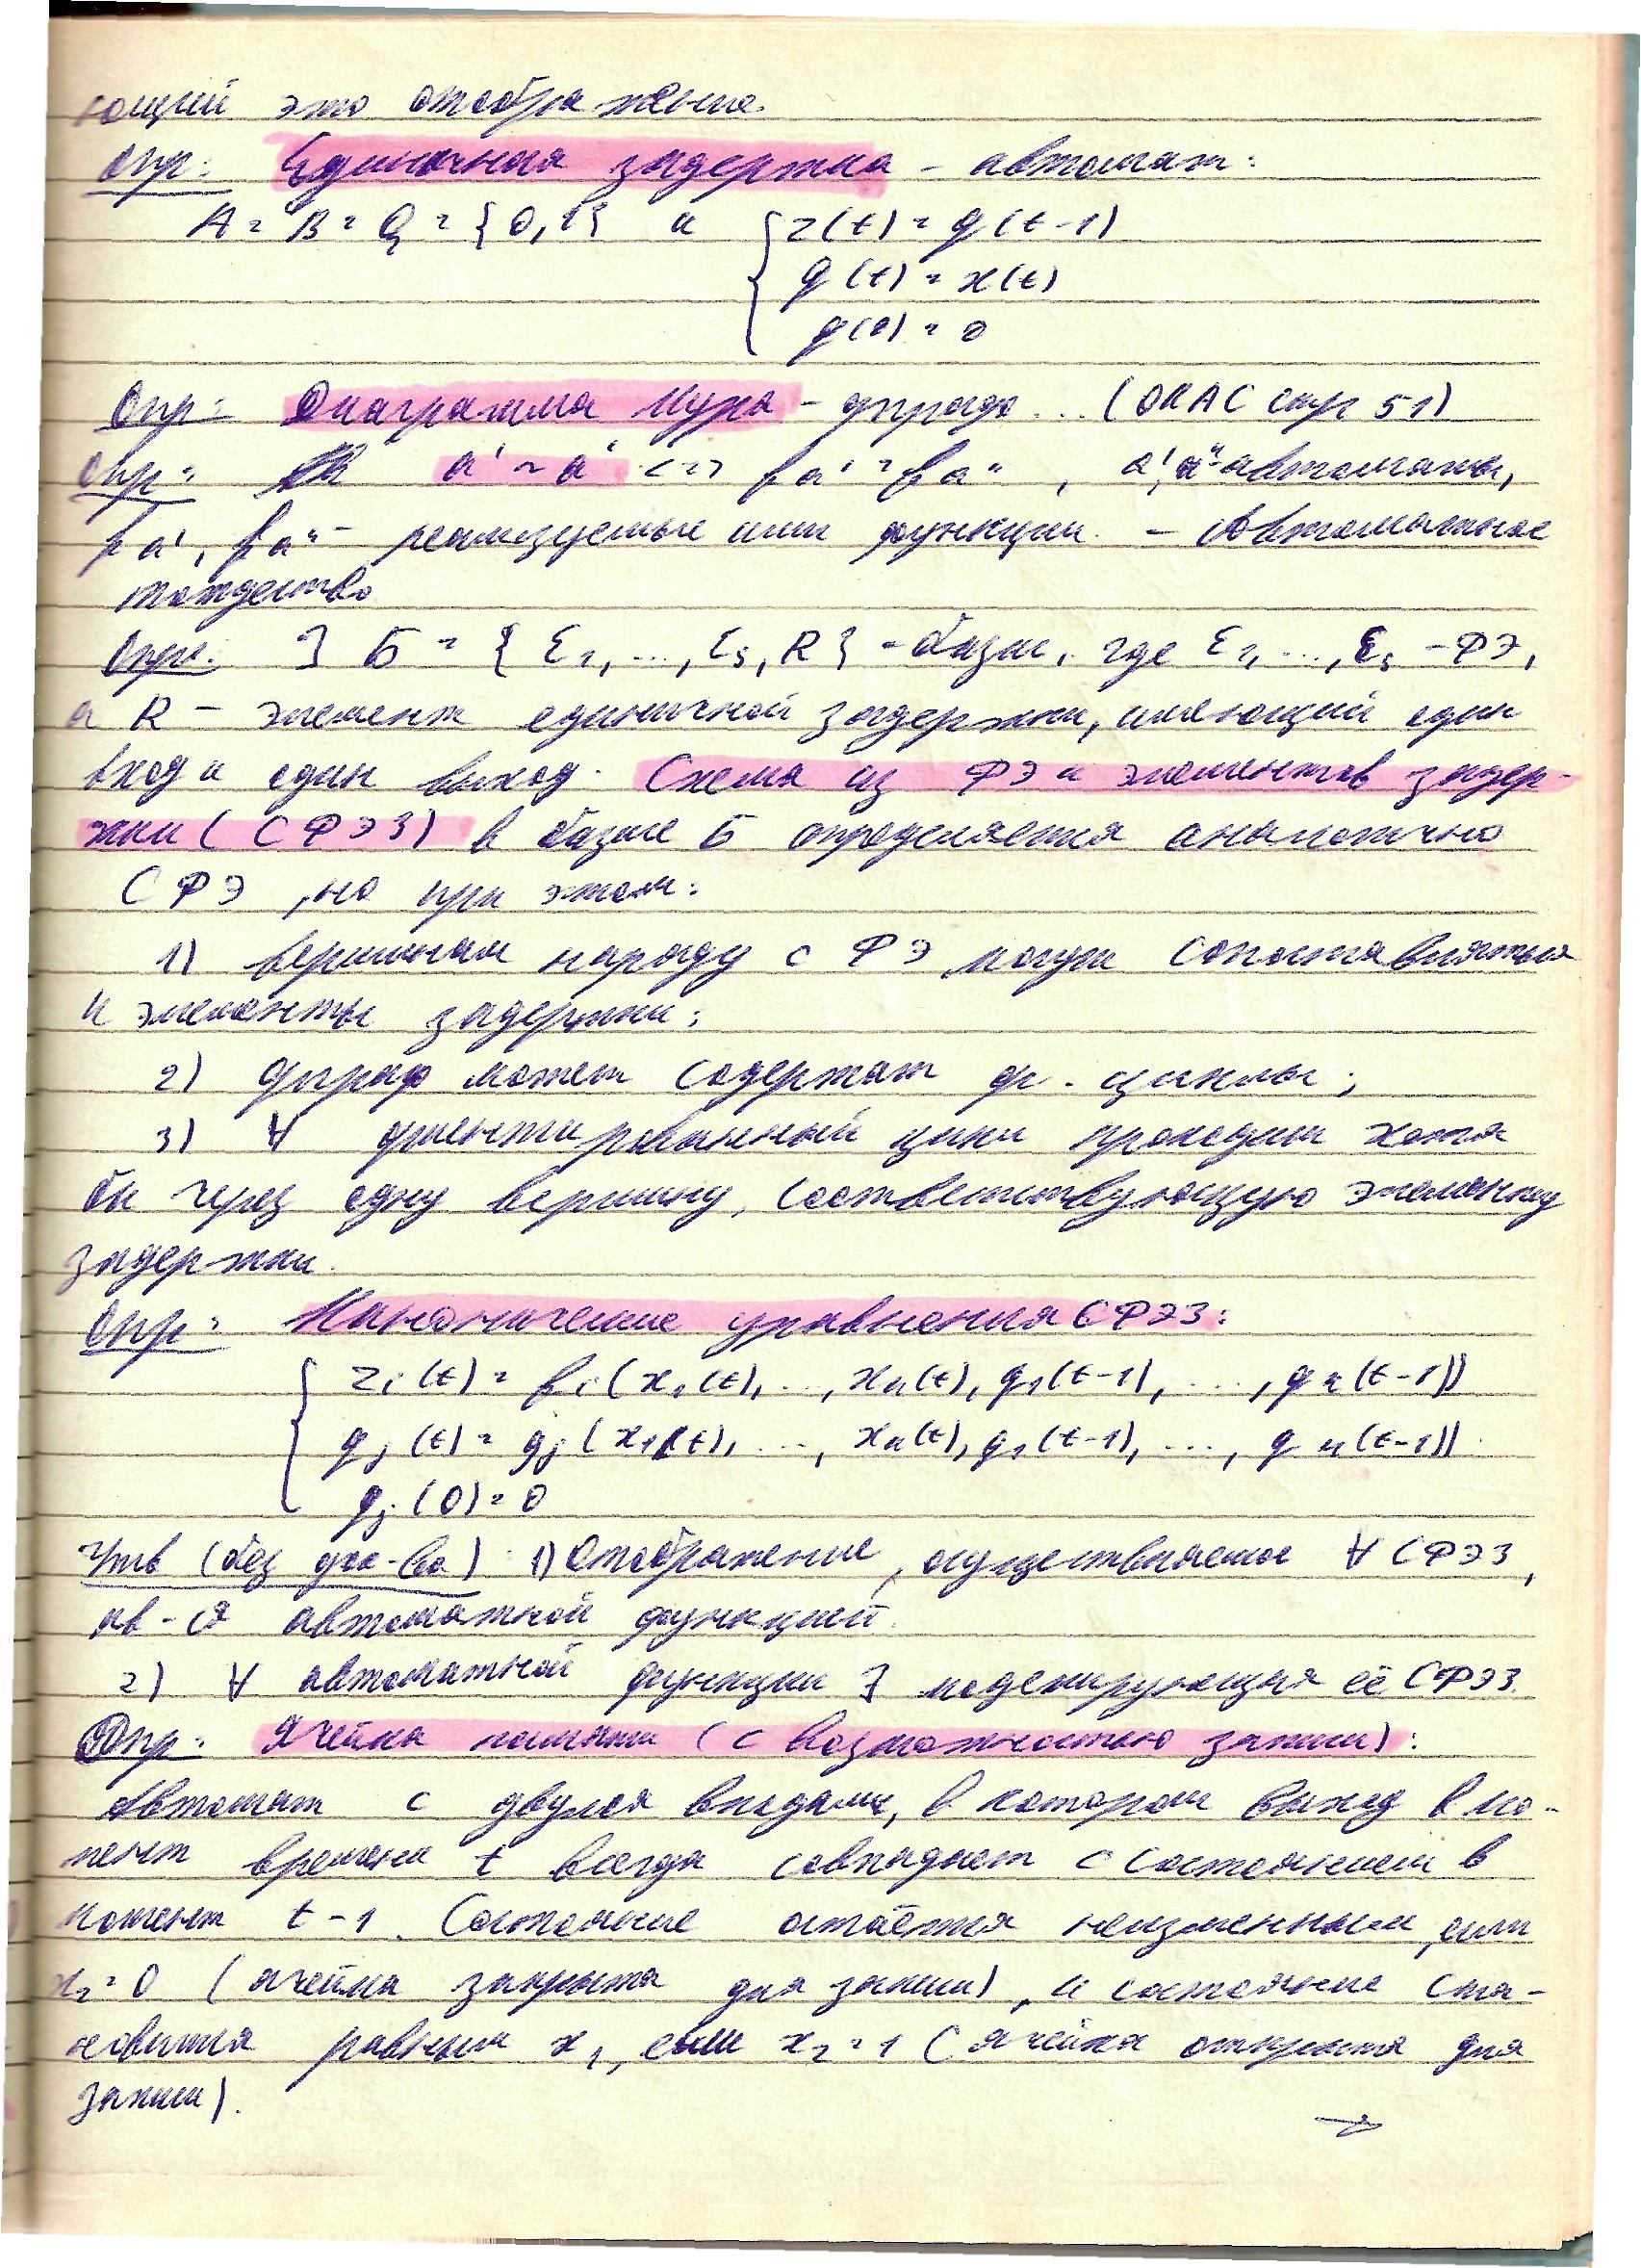 ющий это отображение.
Опр: Единичная задержка - автомат:
A = B = Q = {0,1} и { z(t) = q(t-1)
q(t) = x(t)
q(0) = 0
Опр: Диаграмма Мура - орграф ... (ОКАС стр 51)
Опр: a' ~ a' <=> fa' = fa'' , a', a'' - автоматы,
fa', fa'' - реализуемые ими функции. - Автоматное
тождество
Опр: ] Б = {E1, ..., Es, R} - базис, где E1, ..., Es - ФЭ,
а R - элемент единичной задержки, имеющий один
вход и один выход. Схема из ФЭ и элементов задер-
жки (СФЭЗ) в базисе Б определяется аналогично
СФЭ, но при этом:
1) вершинам наряду с ФЭ могут сопоставляться
и элементы задержки;
2) орграф может содержат ор. циклы;
3) ∀ ориентированный цикл проходит хотя
бы через одну вершину, соответствующую элементу
задержки.
Опр: Канонические уравнения СФЭЗ:
{ zi(t) = fi(x1(t), ..., xn(t), q1(t-1), ..., qr(t-1))
qj(t) = gj(x1(t), ..., xn(t), q1(t-1), ..., qr(t-1))
qj(0) = 0
Утв (без док-ва) 1) Отображение, осуществляемое ∀ СФЭЗ,
яв-ся автоматной функцией.
2) ∀ автоматной функции ∃ моделирующая её СФЭЗ.
Опр: Ячейка памяти (с возможностью записи):
Автомат с двумя входами, в котором выход в мо-
мент времени t всегда совпадает с состоянием в
момент t-1. Состояние остаётся неизменным, если
x2=0 (ячейка закрыта для записи), и состояние ста-
новится равным x1, если x2=1 (ячейка открыта для
записи).
→